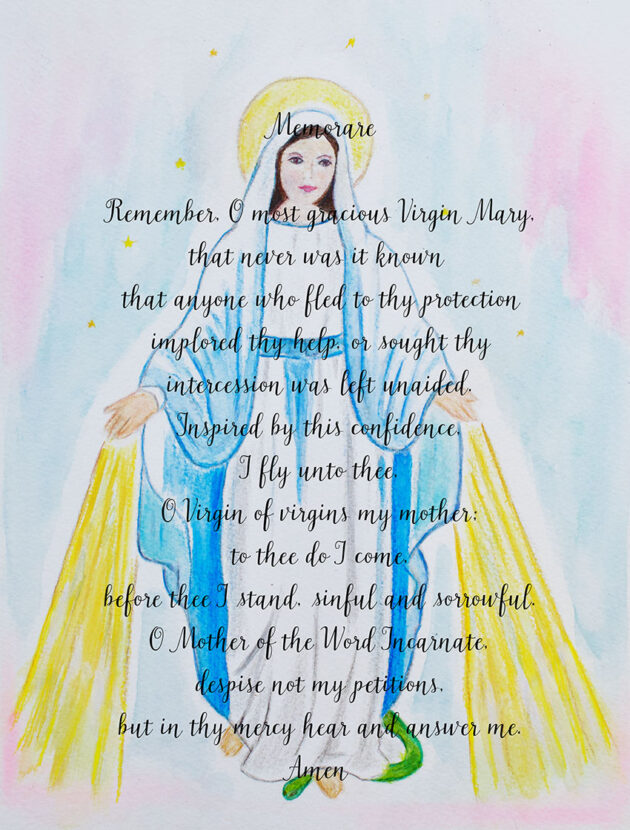 Memorare
Remember, O most gracious Virgin Mary,
that never was it known
that anyone who fled to thy protection
implored thy help, or sought thy
intercession was left unaided.
Inspired by this confidence,
I fly unto thee,
O Virgin of virgins my mother;
to thee do I come,
before thee I stand, sinful and sorrowful.
O Mother of the Word Incarnate,
despise not my petitions,
but in thy mercy hear and answer me.
Amen